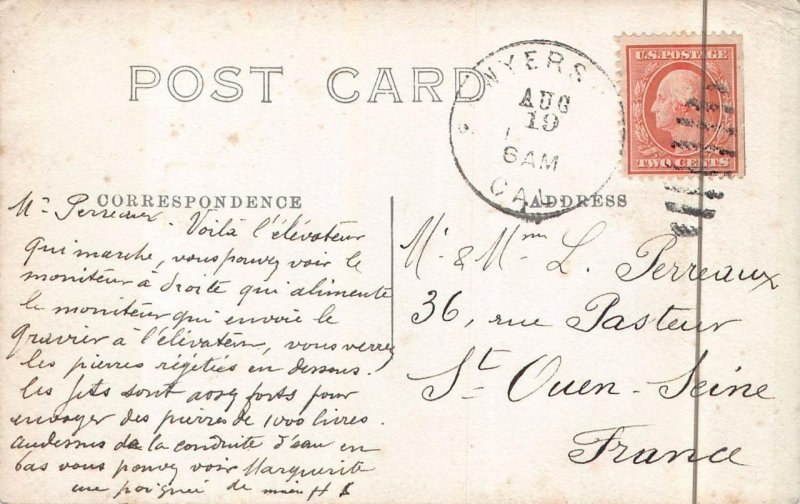 POST CARD
WYERS
AUG
19
6AM
CAL.
U.S. POSTAGE
TWO CENTS
CORRESPONDENCE
ADDRESS
Mr Perreaux. Voilà l'élévateur
qui marche, vous pouvez voir le
moniteur à droite qui alimente
le moniteur qui envoie le
gravier à l'élévateur, vous verrez
les pierres rejetées en dessous.
les jets sont assez forts pour
envoyer des pierres de 1000 livres.
audessus de la conduite d'eau en
bas vous pouvez voir Marguerite
une poignée de main H
Mr & Mme L. Perreaux
36, rue Pasteur
St Ouen-Seine
France